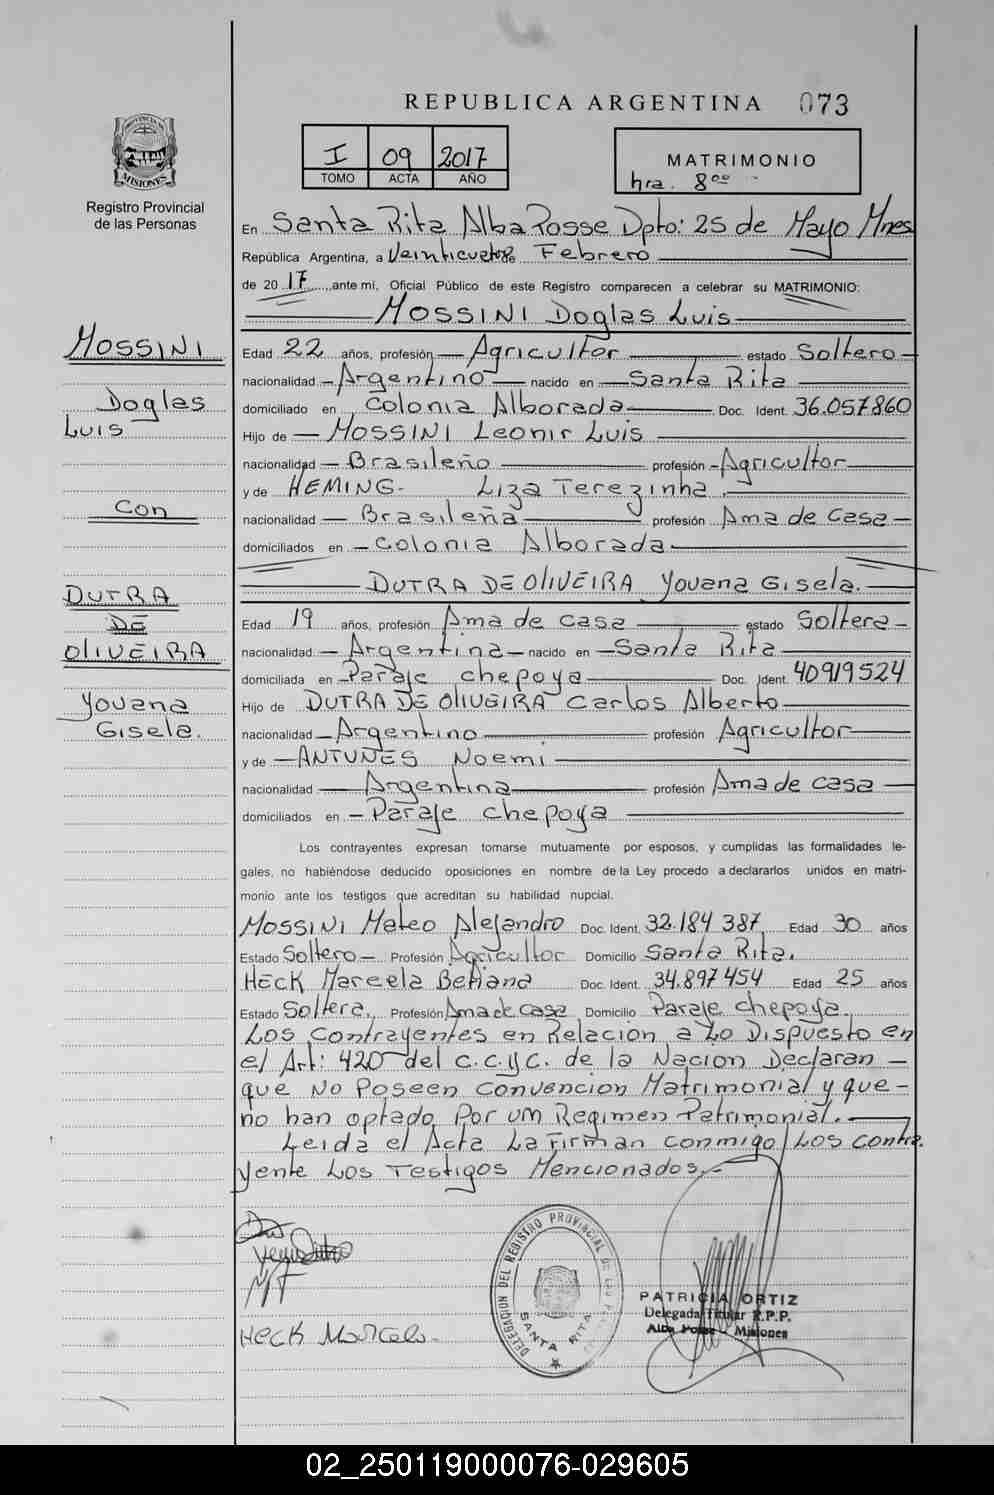 REPUBLICA ARGENTINA 073
I 09 2017
TOMO ACTA AÑO
MATRIMONIO
hra. 8°°
PROVINCIA DE
MISIONES
Registro Provincial
de las Personas
En Santa Rita Alba Posse Dpto: 25 de Mayo Mnes
República Argentina, a Veinticuatro Febrero
de 2017, ante mí, Oficial Público de este Registro comparecen a celebrar su MATRIMONIO:
MOSSINI Doglas Luis
MOSSINI
Doglas
Luis
Con
DUTRA
DE
OLIVEIRA
Yovana
Gisela.
Edad 22 años, profesión Agricultor estado Soltero
nacionalidad Argentino nacido en Santa Rita
domiciliado en Colonia Alborada Doc. Ident. 36.057860
Hijo de MOSSINI Leonir Luis
nacionalidad Brasileño profesión Agricultor
y de HEMING. Liza Terezinha.
nacionalidad Brasileña profesión Ama de Casa
domiciliados en Colonia Alborada
DUTRA DE OLIVEIRA Yovana Gisela.
Edad 19 años, profesión Ama de casa estado Soltera
nacionalidad Argentina nacido en Santa Rita
domiciliada en Paraje chepoya Doc. Ident. 40919524
Hijo de DUTRA DE OLIVEIRA Carlos Alberto
nacionalidad Argentino profesión Agricultor
y de ANTUNES Noemi
nacionalidad Argentina profesión Ama de casa
domiciliados en Paraje chepoya
Los contrayentes expresan tomarse mutuamente por esposos, y cumplidas las formalidades le-
gales, no habiéndose deducido oposiciones en nombre de la Ley procedo a declararlos unidos en matri-
monio ante los testigos que acreditan su habilidad nupcial.
MOSSINI Mateo Alejandro Doc. Ident. 32.184 387 Edad 30 años
Estado Soltero Profesión Agricultor Domicilio Santa Rita.
HECK Marcela Betiana Doc. Ident. 34.897 454 Edad 25 años
Estado Soltera. Profesión Ama de casa Domicilio Paraje chepoya.
Los Contrayentes en Relacion a Lo Dispuesto en
el Art: 420 del C.C.yC. de la Nacion Declaran
que No Poseen Convencion Matrimonial y que
no han optado Por un Regimen Patrimonial.
Leida el Acta La Firman conmigo Los Contra
yente Los Testigos Mencionados.
HECK Marcela.
DELEGACION DEL REGISTRO PROVINCIAL DE LAS
SANTA RITA
PATRICIA ORTIZ
Delegada Titular R.P.P.
Alba Posse - Misiones
02_250119000076-029605